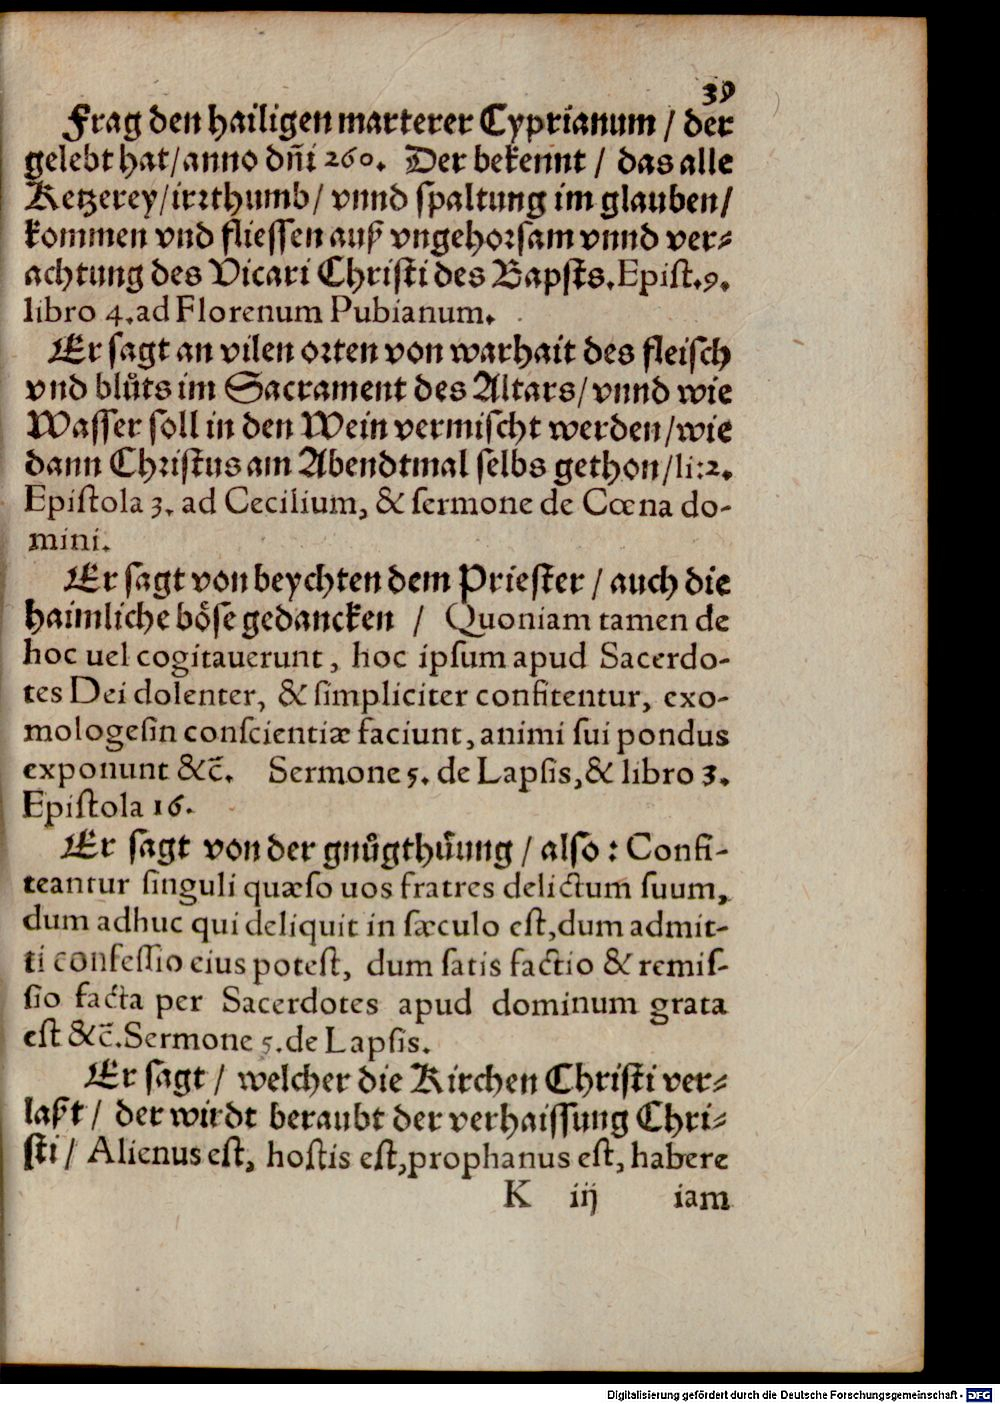 39
Frag den hailigen marterer Cyprianum / der
gelebt hat/anno dñi 260. Der bekennt / das alle
Ketzerey/irꝛthumb/ vnnd spaltung im glauben/
kommen vnd fliessen auß vngehoꝛsam vnnd ver⸗
achtung des Vicari Christi des Bapsts.Epist.9.
libro 4.ad Florenum Pubianum.
Er sagt an vilen oꝛten von warhait des fleisch
vnd blůts im Sacrament des Altars/ vnnd wie
Wasser soll in den Wein vermischt werden/wie
dann Chꝛistus am Abendtmal selbs gethon/li:2.
Epistola 3. ad Cecilium, & sermone de Cœna do-
mini.
Er sagt von beychten dem Priester / auch die
haimliche böse gedancken / Quoniam tamen de
hoc uel cogitauerunt, hoc ipsum apud Sacerdo-
tes Dei dolenter, & simpliciter confitentur, exo-
mologesin conscientiæ faciunt, animi sui pondus
exponunt &c̃. Sermone 5. de Lapsis,& libro 3.
Epistola 16.
Er sagt von der gnůgthůung / also : Confi-
teantur singuli quæso uos fratres delictum suum,
dum adhuc qui deliquit in sæculo est,dum admit-
ti confessio eius potest, dum satis factio & remis-
sio facta per Sacerdotes apud dominum grata
est &c̃.Sermone 5.de Lapsis.
Er sagt / welcher die Kirchen Christi ver⸗
laßt / der wirdt beraubt der verhaissung Chri⸗
sti / Alienus est, hostis est,prophanus est, habere
K iij iam
Digitalisierung gefördert durch die Deutsche Forschungsgemeinschaft - DFG